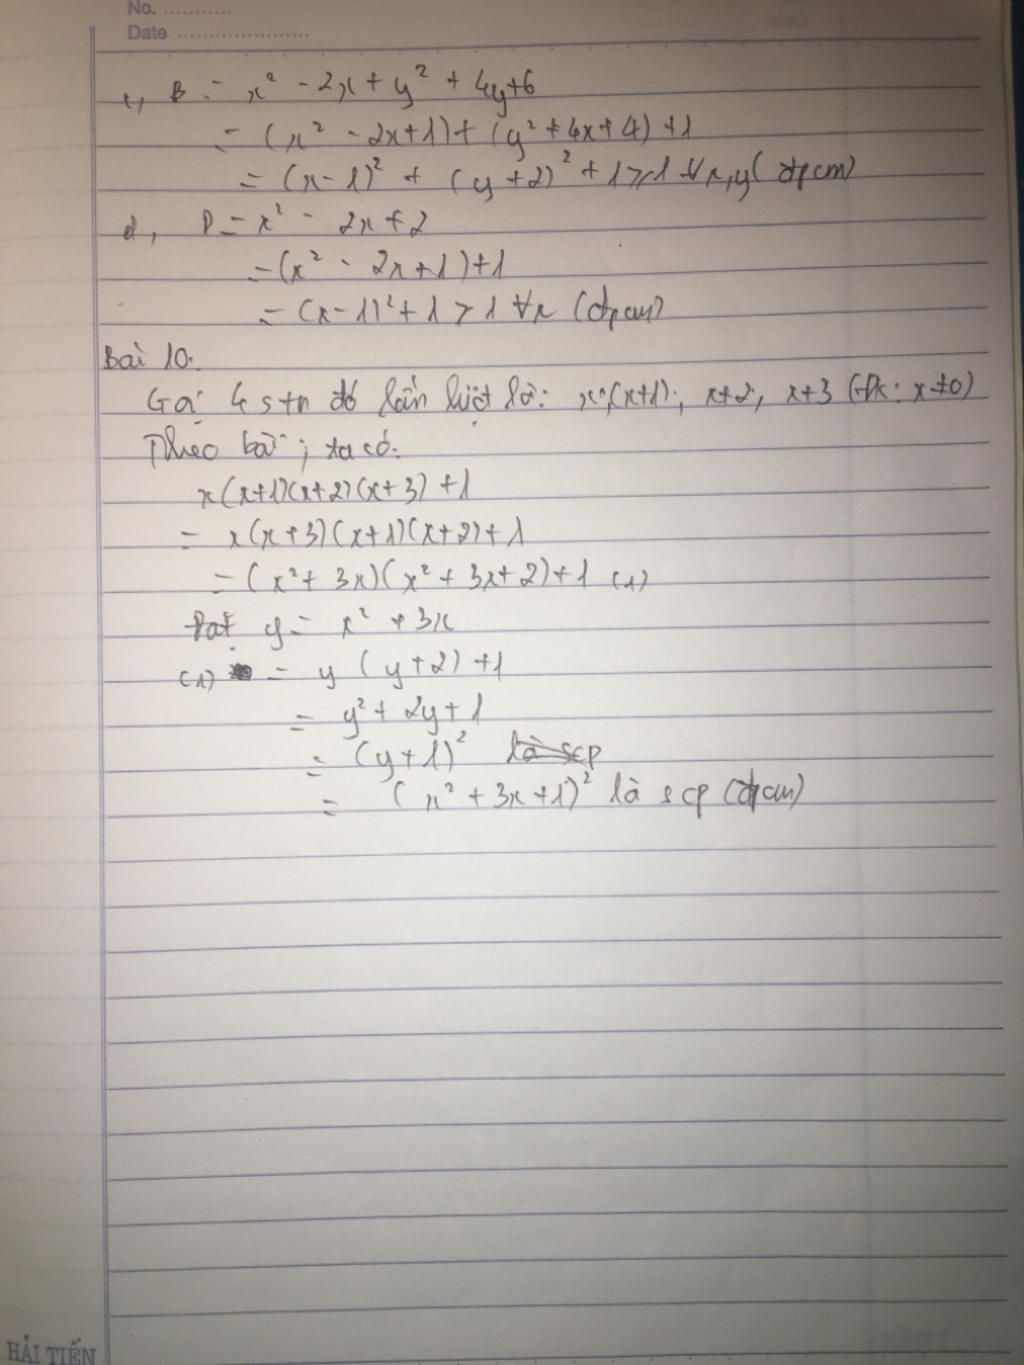 No. ............
Date .......................
c, B = x² - 2x + y² + 4y+6
= (x² - 2x+1) + (y² + 4x+4) +1
= (x-1)² + (y+2)² + 1 ≥ 1 ∀x,y (đpcm)
d, D = x² - 2x + 2
= (x² - 2x+1) +1
= (x-1)² + 1 > 1 ∀x (đpcm)
Bài 10.
Gọi 4 stn đó lần lượt là: x; (x+1); x+2; x+3 (đk: x≠0)
Theo bài, ta có:
x(x+1)(x+2)(x+3) +1
= x(x+3)(x+1)(x+2)+1
= (x² + 3x)(x² + 3x+2)+1 (1)
Đặt y = x² + 3x
(1) = y (y+2) +1
= y² + 2y+1
= (y+1)² là scp
= (x² + 3x+1)² là scp (đpcm)
HẢI TIẾN